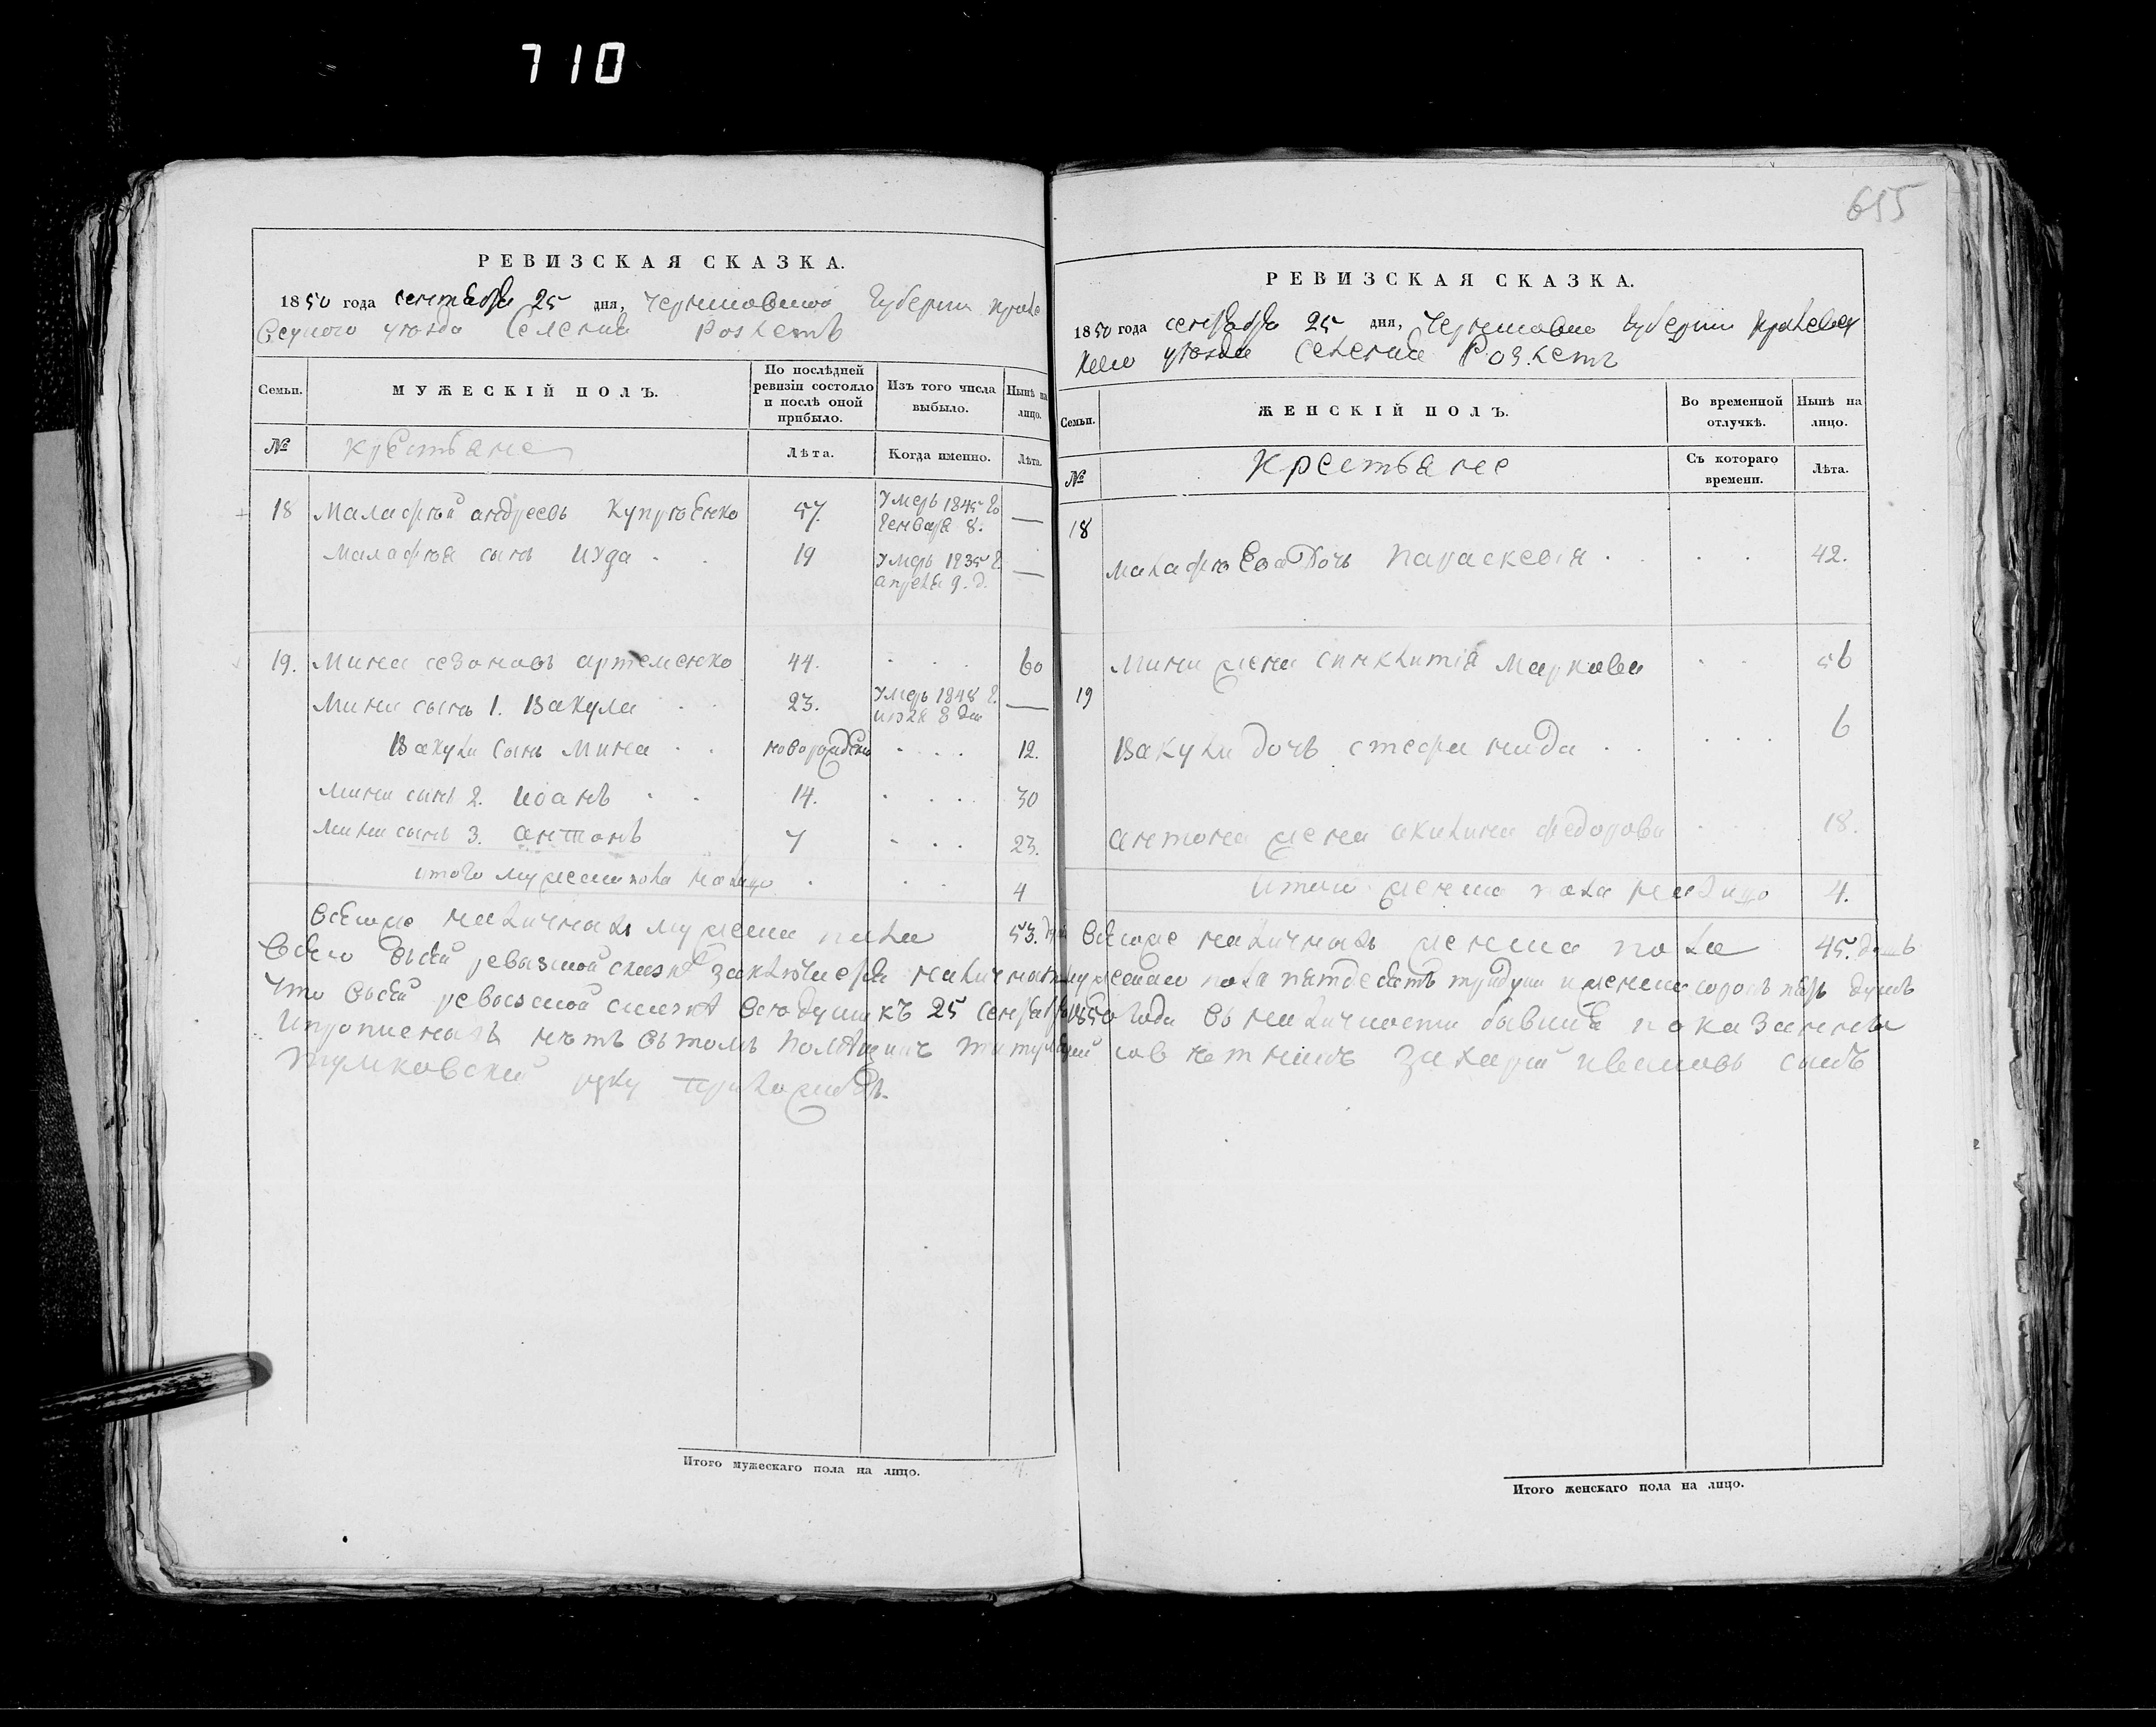 710
РЕВИЗСКАЯ СКАЗКА.
1850 года сентября 25 дня, Черниговской Губернии Кроле
вецкого уезда Селения
Семьи.
МУЖЕСКІЙ ПОЛЪ.
По послѣдней ревизіи состояло и послѣ оной прибыло.
Изъ того числа выбыло.
Нынѣ на лицо.
№
крестьяне
Лѣта.
Когда именно.
Лѣта.
18 Малафѣй андреевъ Купрѣенко 57. Умеръ 1845 го Генваря 8. —
Малафѣя сынъ Иуда 19 Умеръ 1835 г апреля 9. д. —
19. Мина сезоновъ артеменко 44. 60
Мины сынъ 1. Вакула 23. Умеръ 1848 г. —
Вакулы сынъ Мина новорожденъ 12.
Мины сынъ 2. Иоанъ 14. 30
Мины сынъ 3. антонъ 7 23.
итого мужеска пола налицо 4
мужеска пола 53. душ
Всего в сей ревизской сказке наличнаго
что в сей ревизской сказке все души къ 25 сентября
и прописныхъ нетъ въ томъ титулярный
руку приложилъ.
Итого мужескаго пола на лицо.
655
РЕВИЗСКАЯ СКАЗКА.
1850 года сентября 25 дня, Черниговской губернии Кролевец
кого уезда селения
Семьи.
ЖЕНСКІЙ ПОЛЪ.
Во временной отлучкѣ.
Нынѣ на лицо.
№
Крестьяне
Съ котораго времени.
Лѣта.
18
малафѣева дочь Параскевія 42.
Мины жена синклитія Маркова 56
19
Вакулы дочь стефанида 6
антона жена акилина федорова 18.
Итого женска пола налицо 4.
женска пола 45. душъ
мужескаго пола пятдесятъ три души и женска сорокъ пять душъ
1850 года в наличности бывшие показанны
советникъ Захарий ивановъ сынъ
Итого женскаго пола на лицо.